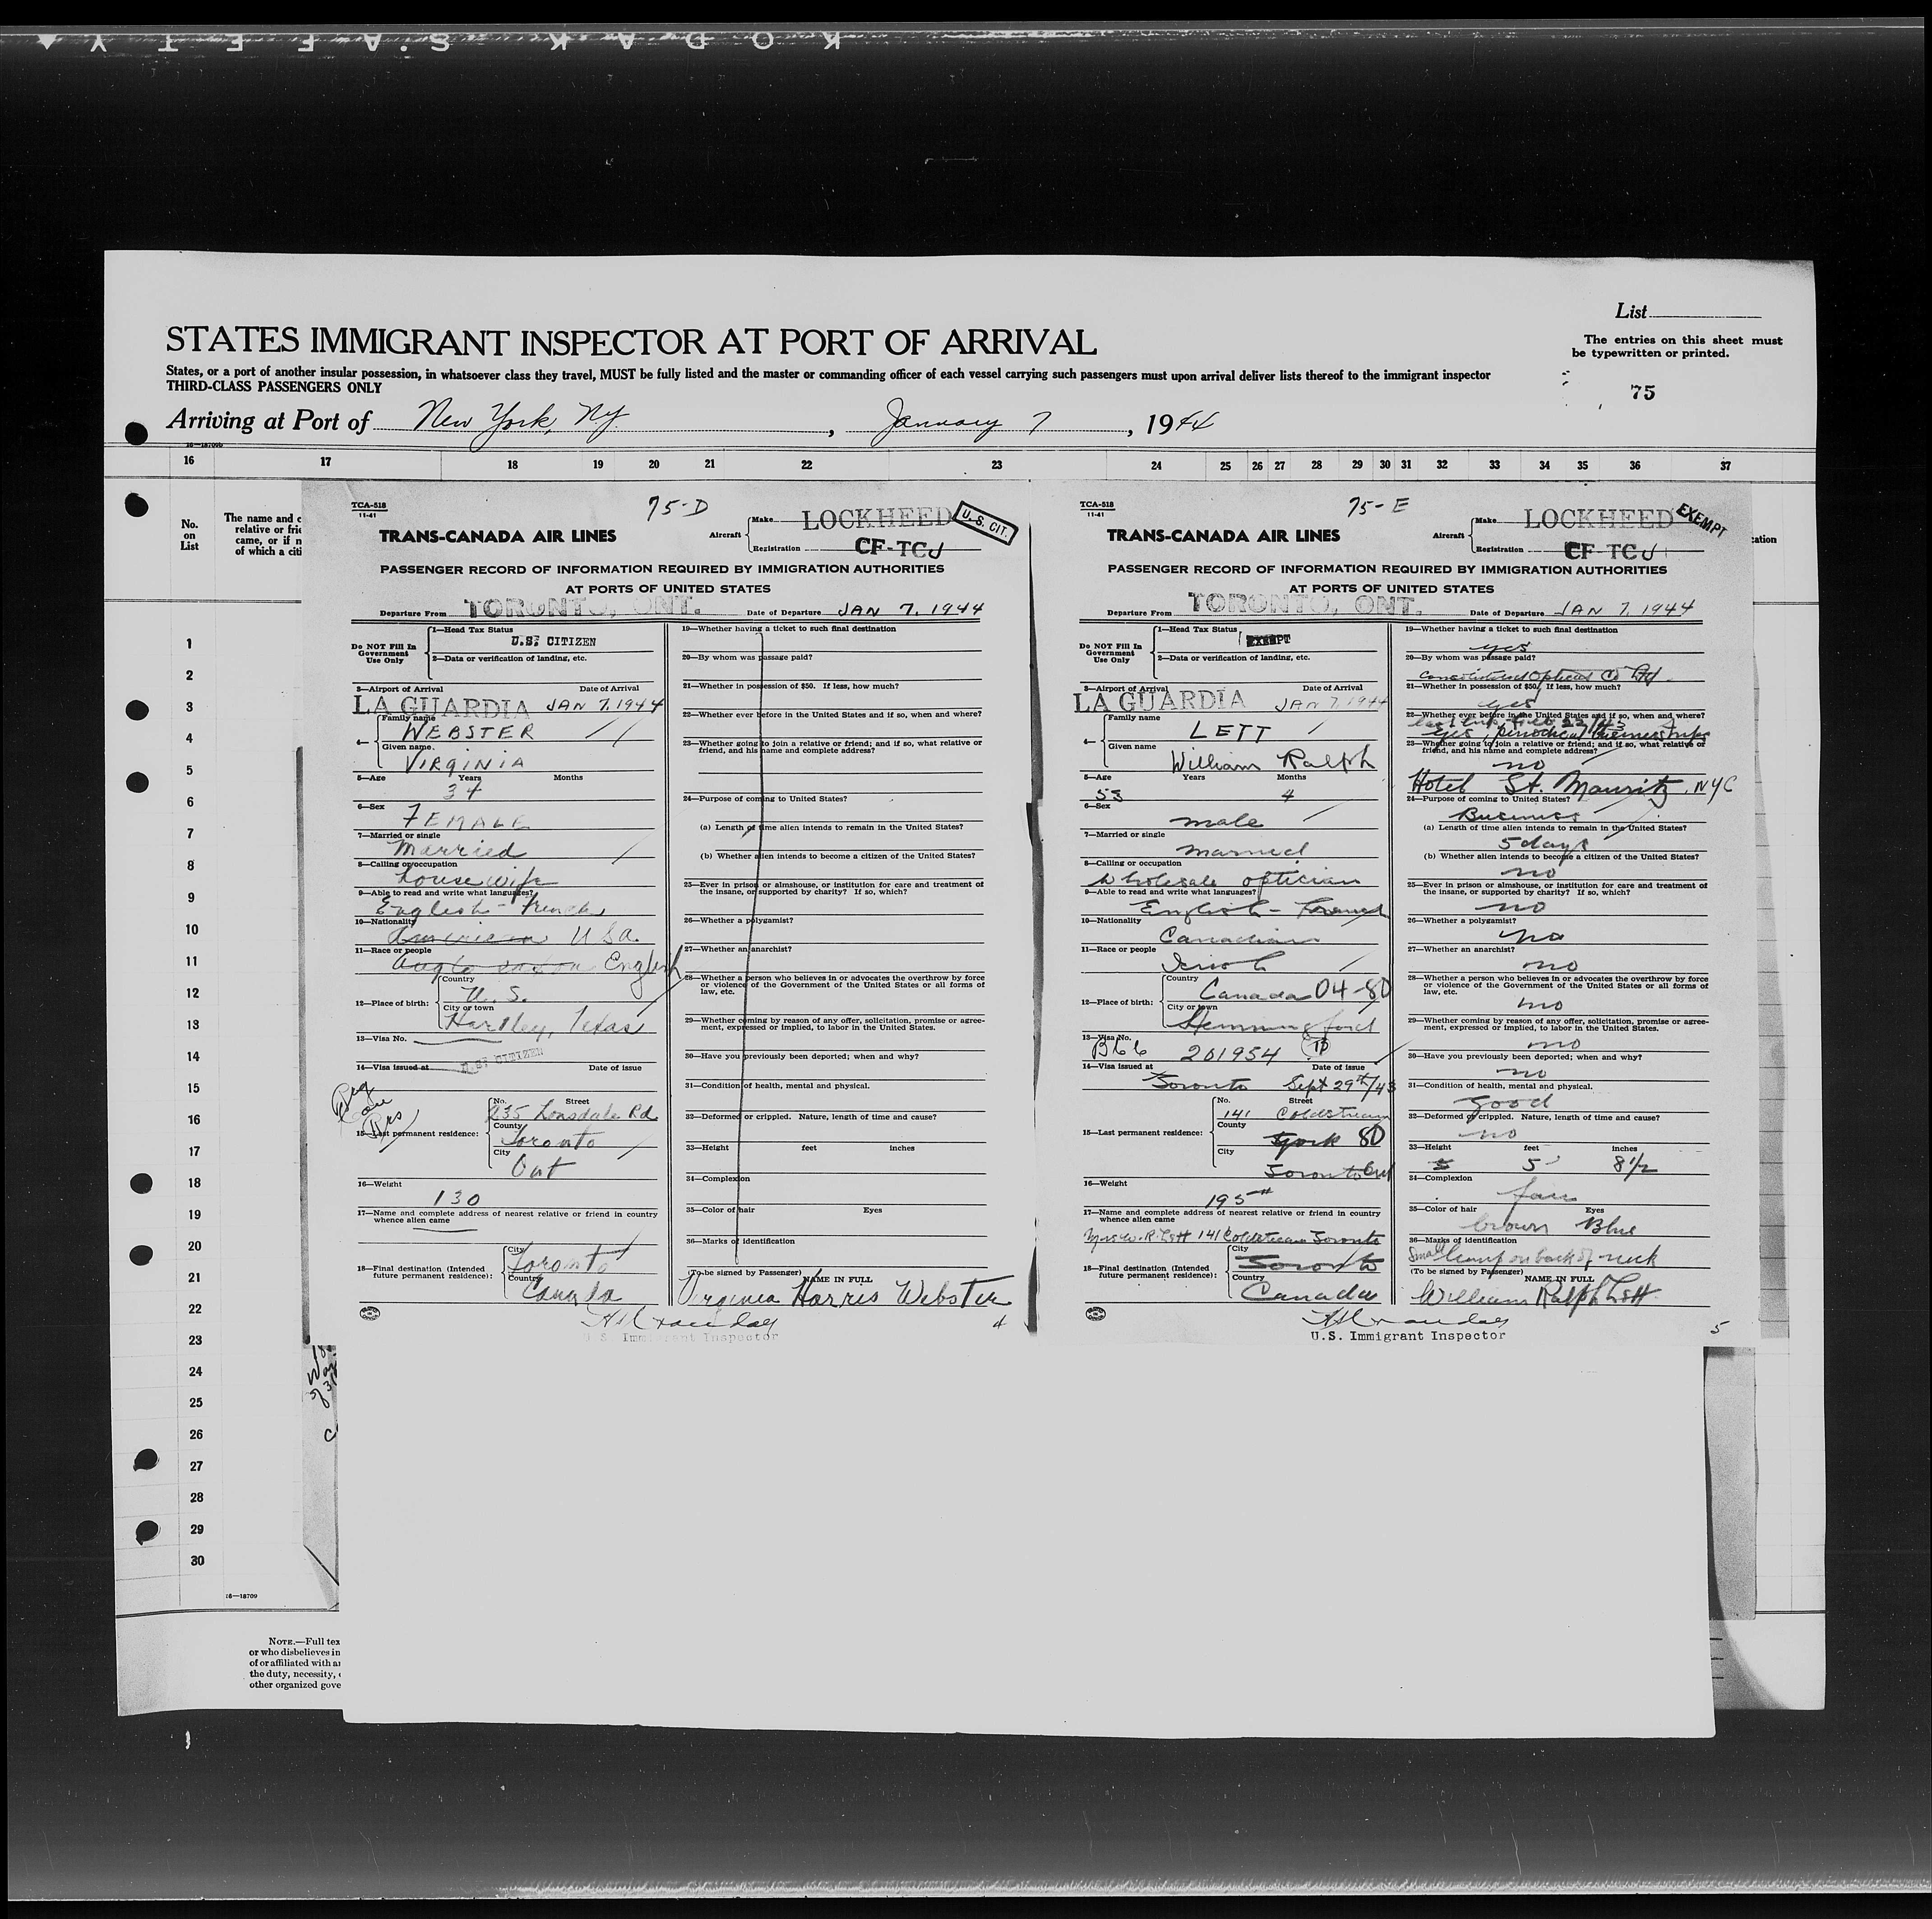 KODAK S.AFETY
List
STATES IMMIGRANT INSPECTOR AT PORT OF ARRIVAL
The entries on this sheet must
be typewritten or printed.
States, or a port of another insular possession, in whatsoever class they travel, MUST be fully listed and the master or commanding officer of each vessel carrying such passengers must upon arrival deliver lists thereof to the immigrant inspector
THIRD-CLASS PASSENGERS ONLY
75
Arriving at Port of New York, N.Y. , January 7 , 1944
16 17 18 19 20 21 22 23 24 25 26 27 28 29 30 31 32 33 34 35 36 37
No.
on
List
The name and c
relative or frie
came, or if n
of which a citi
cation
1
2
3
4
5
6
7
8
9
10
11
12
13
14
15
16
17
18
19
20
21
22
23
24
25
26
27
28
29
30
TCA-518
11-41
75-D
TRANS-CANADA AIR LINES
Aircraft
Make LOCKHEED
U.S. CIT.
Registration CF-TCJ
PASSENGER RECORD OF INFORMATION REQUIRED BY IMMIGRATION AUTHORITIES
AT PORTS OF UNITED STATES
Departure From TORONTO, ONT. Date of Departure JAN 7, 1944
Do NOT Fill In
Government
Use Only
1—Head Tax Status
U.S. CITIZEN
2—Data or verification of landing, etc.
3—Airport of Arrival Date of Arrival
LA GUARDIA JAN 7, 1944
4—
Family name
WEBSTER
Given name
VIRGINIA
5—Age Years Months
34
6—Sex
FEMALE
7—Married or single
Married
8—Calling or occupation
housewife
9—Able to read and write what languages?
English - French
10—Nationality
American U S a.
11—Race or people
Anglo saxon English
12—Place of birth:
Country
U. S.
City or town
Hartley, Texas
13—Visa No.
U.S. CITIZEN
14—Visa issued at Date of issue
15—Last permanent residence:
No. Street
235 Lonsdale Rd.
County
Toronto
City
Ont
16—Weight
130
17—Name and complete address of nearest relative or friend in country
whence alien came
18—Final destination (Intended
future permanent residence):
City
Toronto
Country
Canada
19—Whether having a ticket to such final destination
20—By whom was passage paid?
21—Whether in possession of $50. If less, how much?
22—Whether ever before in the United States and if so, when and where?
23—Whether going to join a relative or friend; and if so, what relative or
friend, and his name and complete address?
24—Purpose of coming to United States?
(a) Length of time alien intends to remain in the United States?
(b) Whether alien intends to become a citizen of the United States?
25—Ever in prison or almshouse, or institution for care and treatment of
the insane, or supported by charity? If so, which?
26—Whether a polygamist?
27—Whether an anarchist?
28—Whether a person who believes in or advocates the overthrow by force
or violence of the Government of the United States or all forms of
law, etc.
29—Whether coming by reason of any offer, solicitation, promise or agree-
ment, expressed or implied, to labor in the United States.
30—Have you previously been deported; when and why?
31—Condition of health, mental and physical.
32—Deformed or crippled. Nature, length of time and cause?
33—Height feet inches
34—Complexion
35—Color of hair Eyes
36—Marks of identification
(To be signed by Passenger) NAME IN FULL
Virginia Harris Webster
U.S. Immigrant Inspector
4
TCA-518
11-41
75-E
TRANS-CANADA AIR LINES
Aircraft
Make LOCKHEED
EXEMPT
Registration CF-TCJ
PASSENGER RECORD OF INFORMATION REQUIRED BY IMMIGRATION AUTHORITIES
AT PORTS OF UNITED STATES
Departure From TORONTO, ONT. Date of Departure JAN 7, 1944
Do NOT Fill In
Government
Use Only
1—Head Tax Status
EXEMPT
2—Data or verification of landing, etc.
3—Airport of Arrival Date of Arrival
LA GUARDIA JAN 7, 1944
4—
Family name
LETT
Given name
William Ralph
5—Age Years Months
53 4
6—Sex
male
7—Married or single
married
8—Calling or occupation
Wholesale optician
9—Able to read and write what languages?
English - French
10—Nationality
Canadian
11—Race or people
Irish
12—Place of birth:
Country
Canada 04-80
City or town
Hemmingford
13—Visa No.
B66 201954
14—Visa issued at Date of issue
Toronto Sept 29th/43
15—Last permanent residence:
No. Street
141 Coldstream
County
York 80
City
Toronto Ont
16—Weight
195#
17—Name and complete address of nearest relative or friend in country
whence alien came
Mrs W. R. Lett 141 Coldstream Toronto
18—Final destination (Intended
future permanent residence):
City
Toronto
Country
Canada
19—Whether having a ticket to such final destination
yes
20—By whom was passage paid?
Consolidated Optical Co Ltd
21—Whether in possession of $50. If less, how much?
yes
22—Whether ever before in the United States and if so, when and where?
last trip, Feb 22/43
yes, periodical business trips
23—Whether going to join a relative or friend; and if so, what relative or
friend, and his name and complete address?
no
Hotel St. Mauritz, NYC
24—Purpose of coming to United States?
Business
(a) Length of time alien intends to remain in the United States?
5 days
(b) Whether alien intends to become a citizen of the United States?
no
25—Ever in prison or almshouse, or institution for care and treatment of
the insane, or supported by charity? If so, which?
no
26—Whether a polygamist?
no
27—Whether an anarchist?
no
28—Whether a person who believes in or advocates the overthrow by force
or violence of the Government of the United States or all forms of
law, etc.
no
29—Whether coming by reason of any offer, solicitation, promise or agree-
ment, expressed or implied, to labor in the United States.
no
30—Have you previously been deported; when and why?
no
31—Condition of health, mental and physical.
good
32—Deformed or crippled. Nature, length of time and cause?
no
33—Height feet inches
5 5 8 1/2
34—Complexion
fair
35—Color of hair Eyes
brown Blue
36—Marks of identification
Small lump on back of neck
(To be signed by Passenger) NAME IN FULL
William Ralph Lett
U.S. Immigrant Inspector
5
16—18709
NOTE.—Full tex
or who disbelieves in
of or affiliated with a
the duty, necessity,
other organized gove